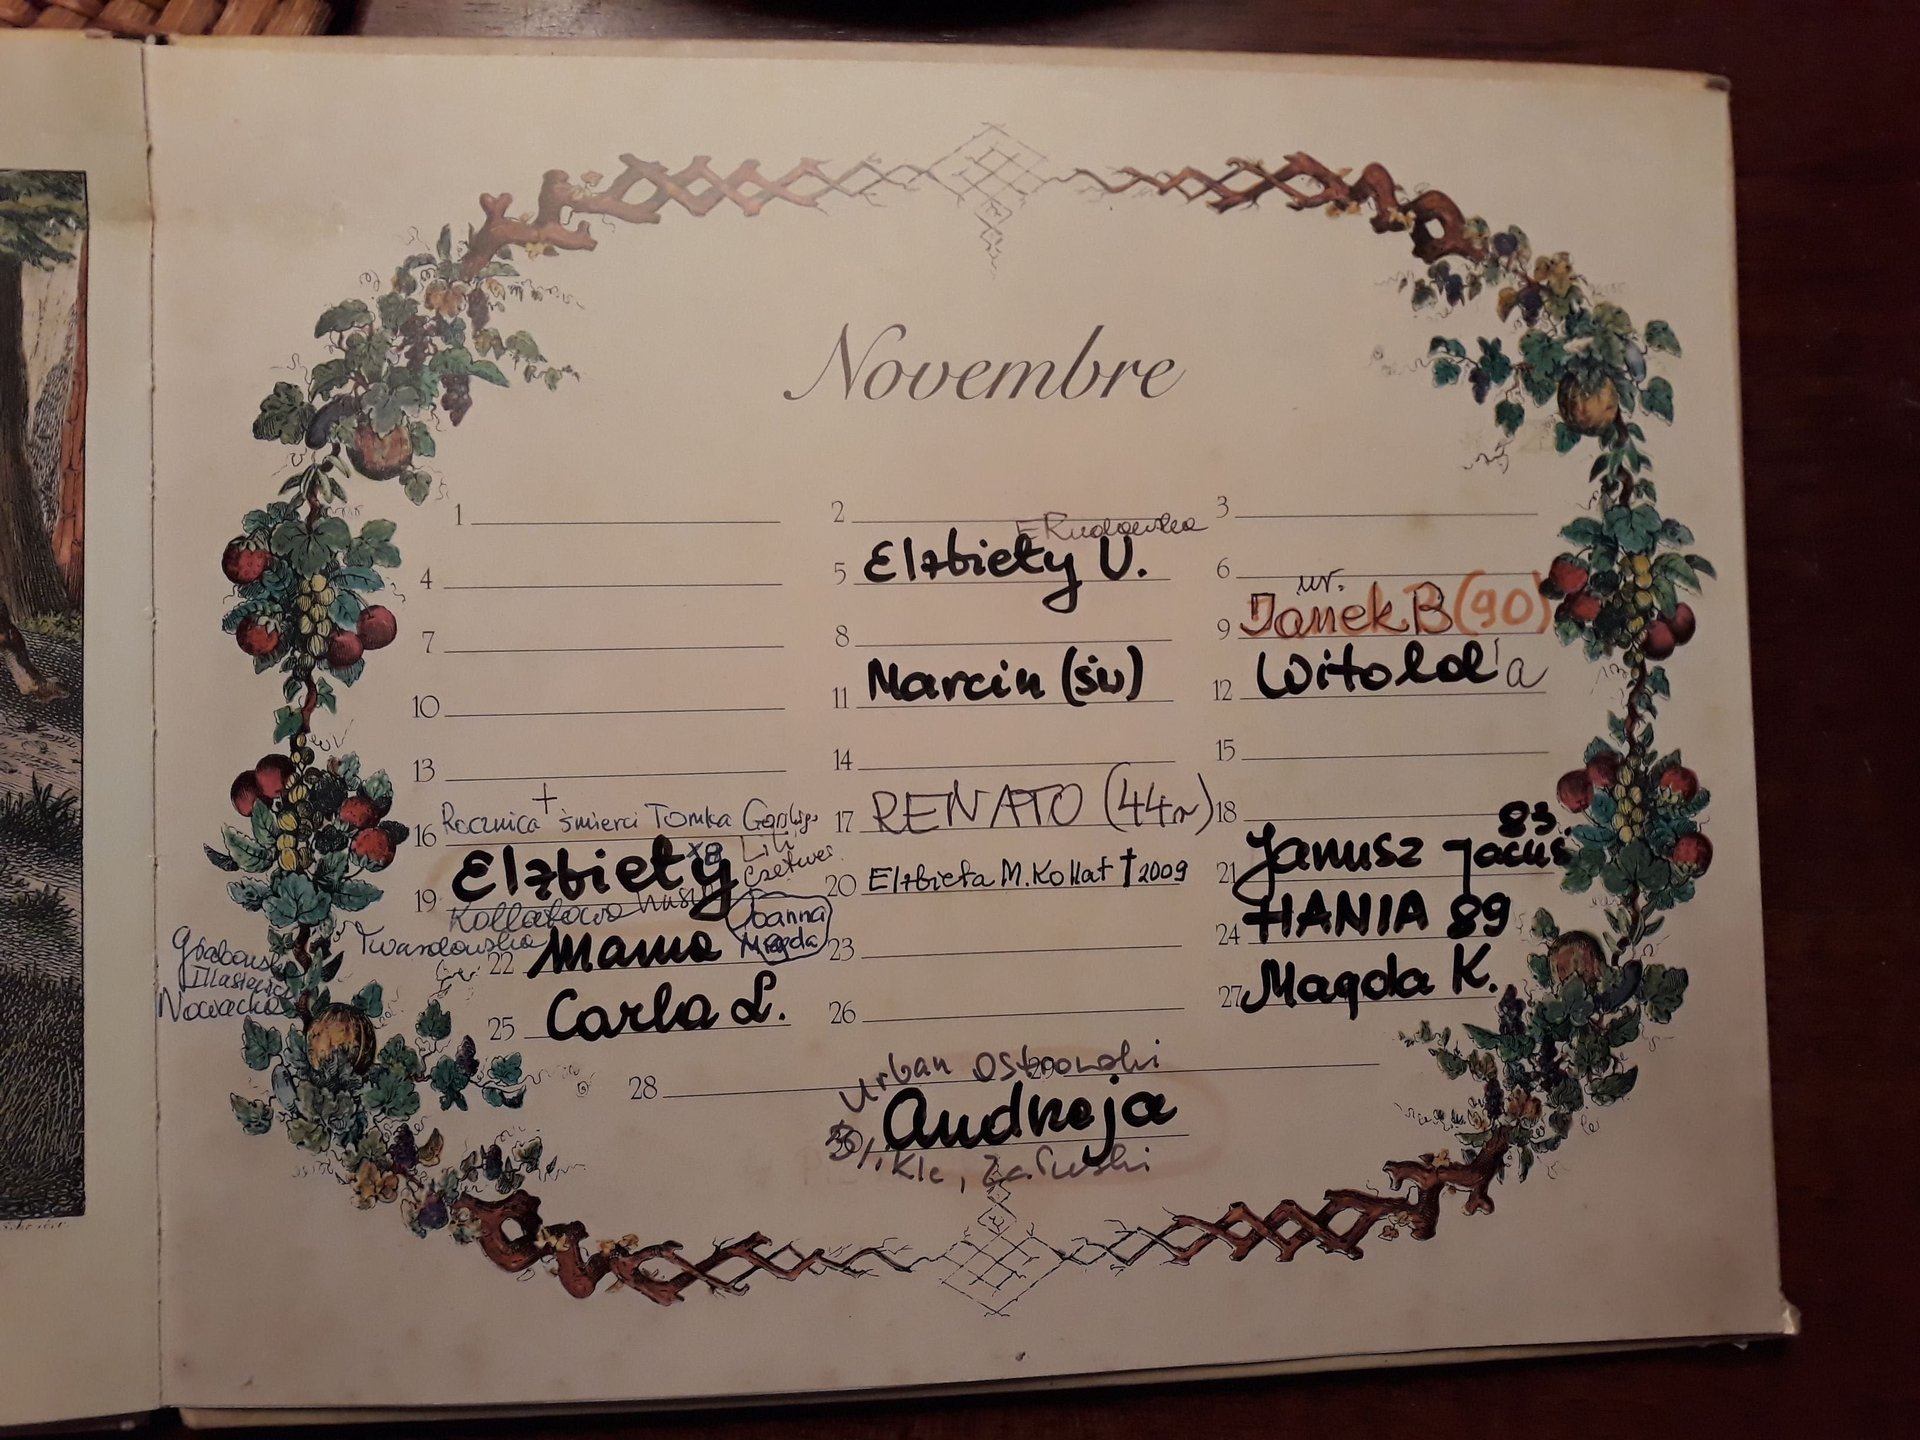 Novembre
1
2
3
E Rudowska
4
5 Elżbiety U.
6
ur.
7
8
9 Janek B (90)
10
11 Marcin (św)
12 Witold'a
13
14
15
+
16 Rocznica śmierci Tomka
17 RENATO (44r)
18
83
19 Elżbiety
Lili
20 Elżbieta M. Kollat † 2009
21 Janusz Jacuś
Joanna
Twardowska
22 Mama
Magda
23
24 HANIA 89
Nowacka
25 Carla L.
26
27 Magda K.
28
29
Urban Ostrowski
30 Andrzeja
Załuski